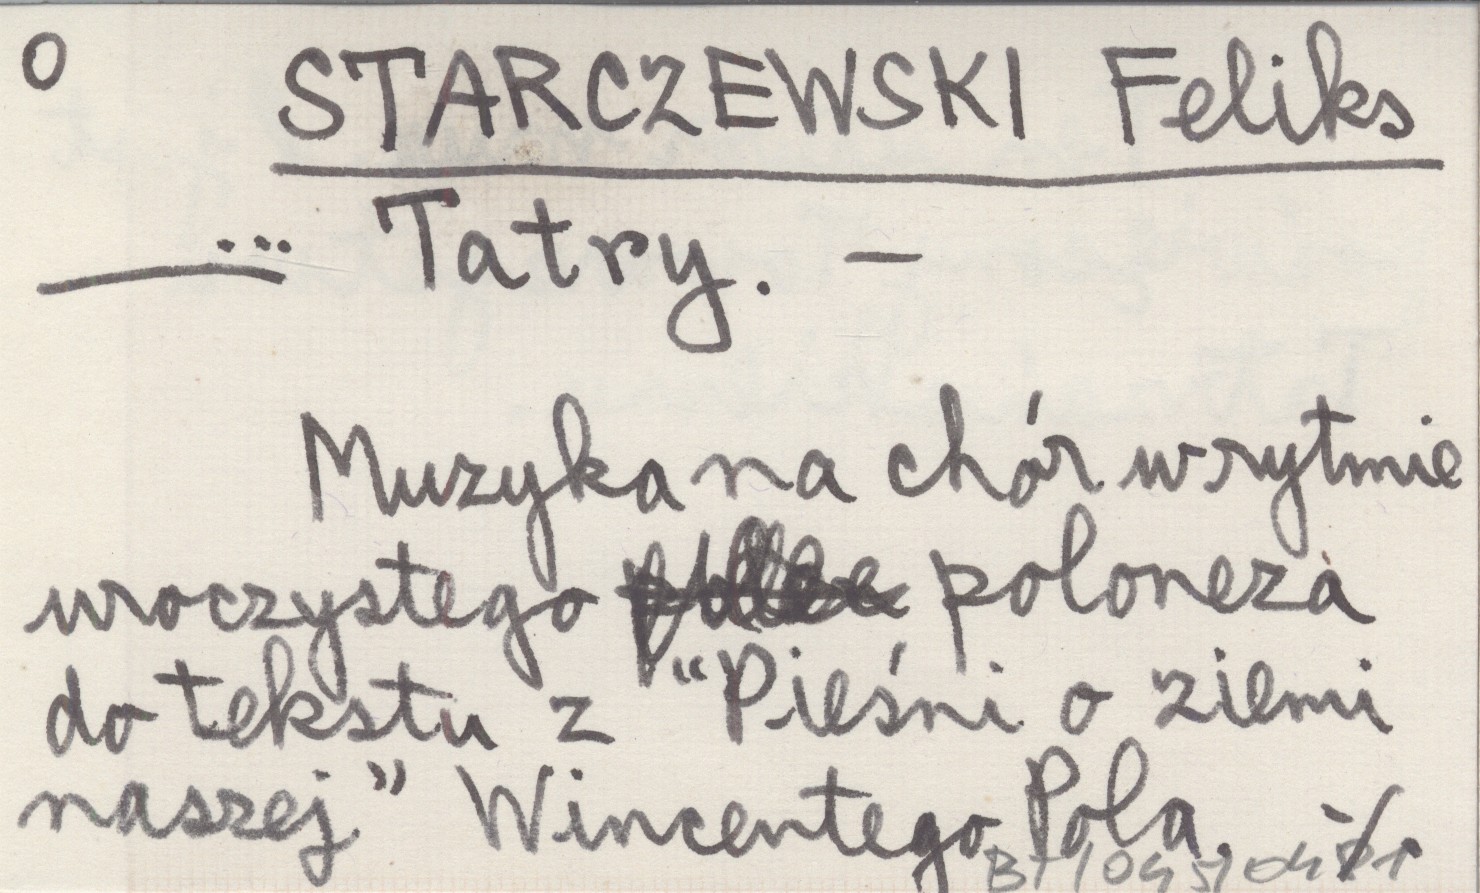 O
STARCZEWSKI Feliks
... Tatry. —
Muzyka na chór w rytmie
uroczystego poloneza
do tekstu z "Pieśni o ziemi
naszej" Wincentego Pola. -/-